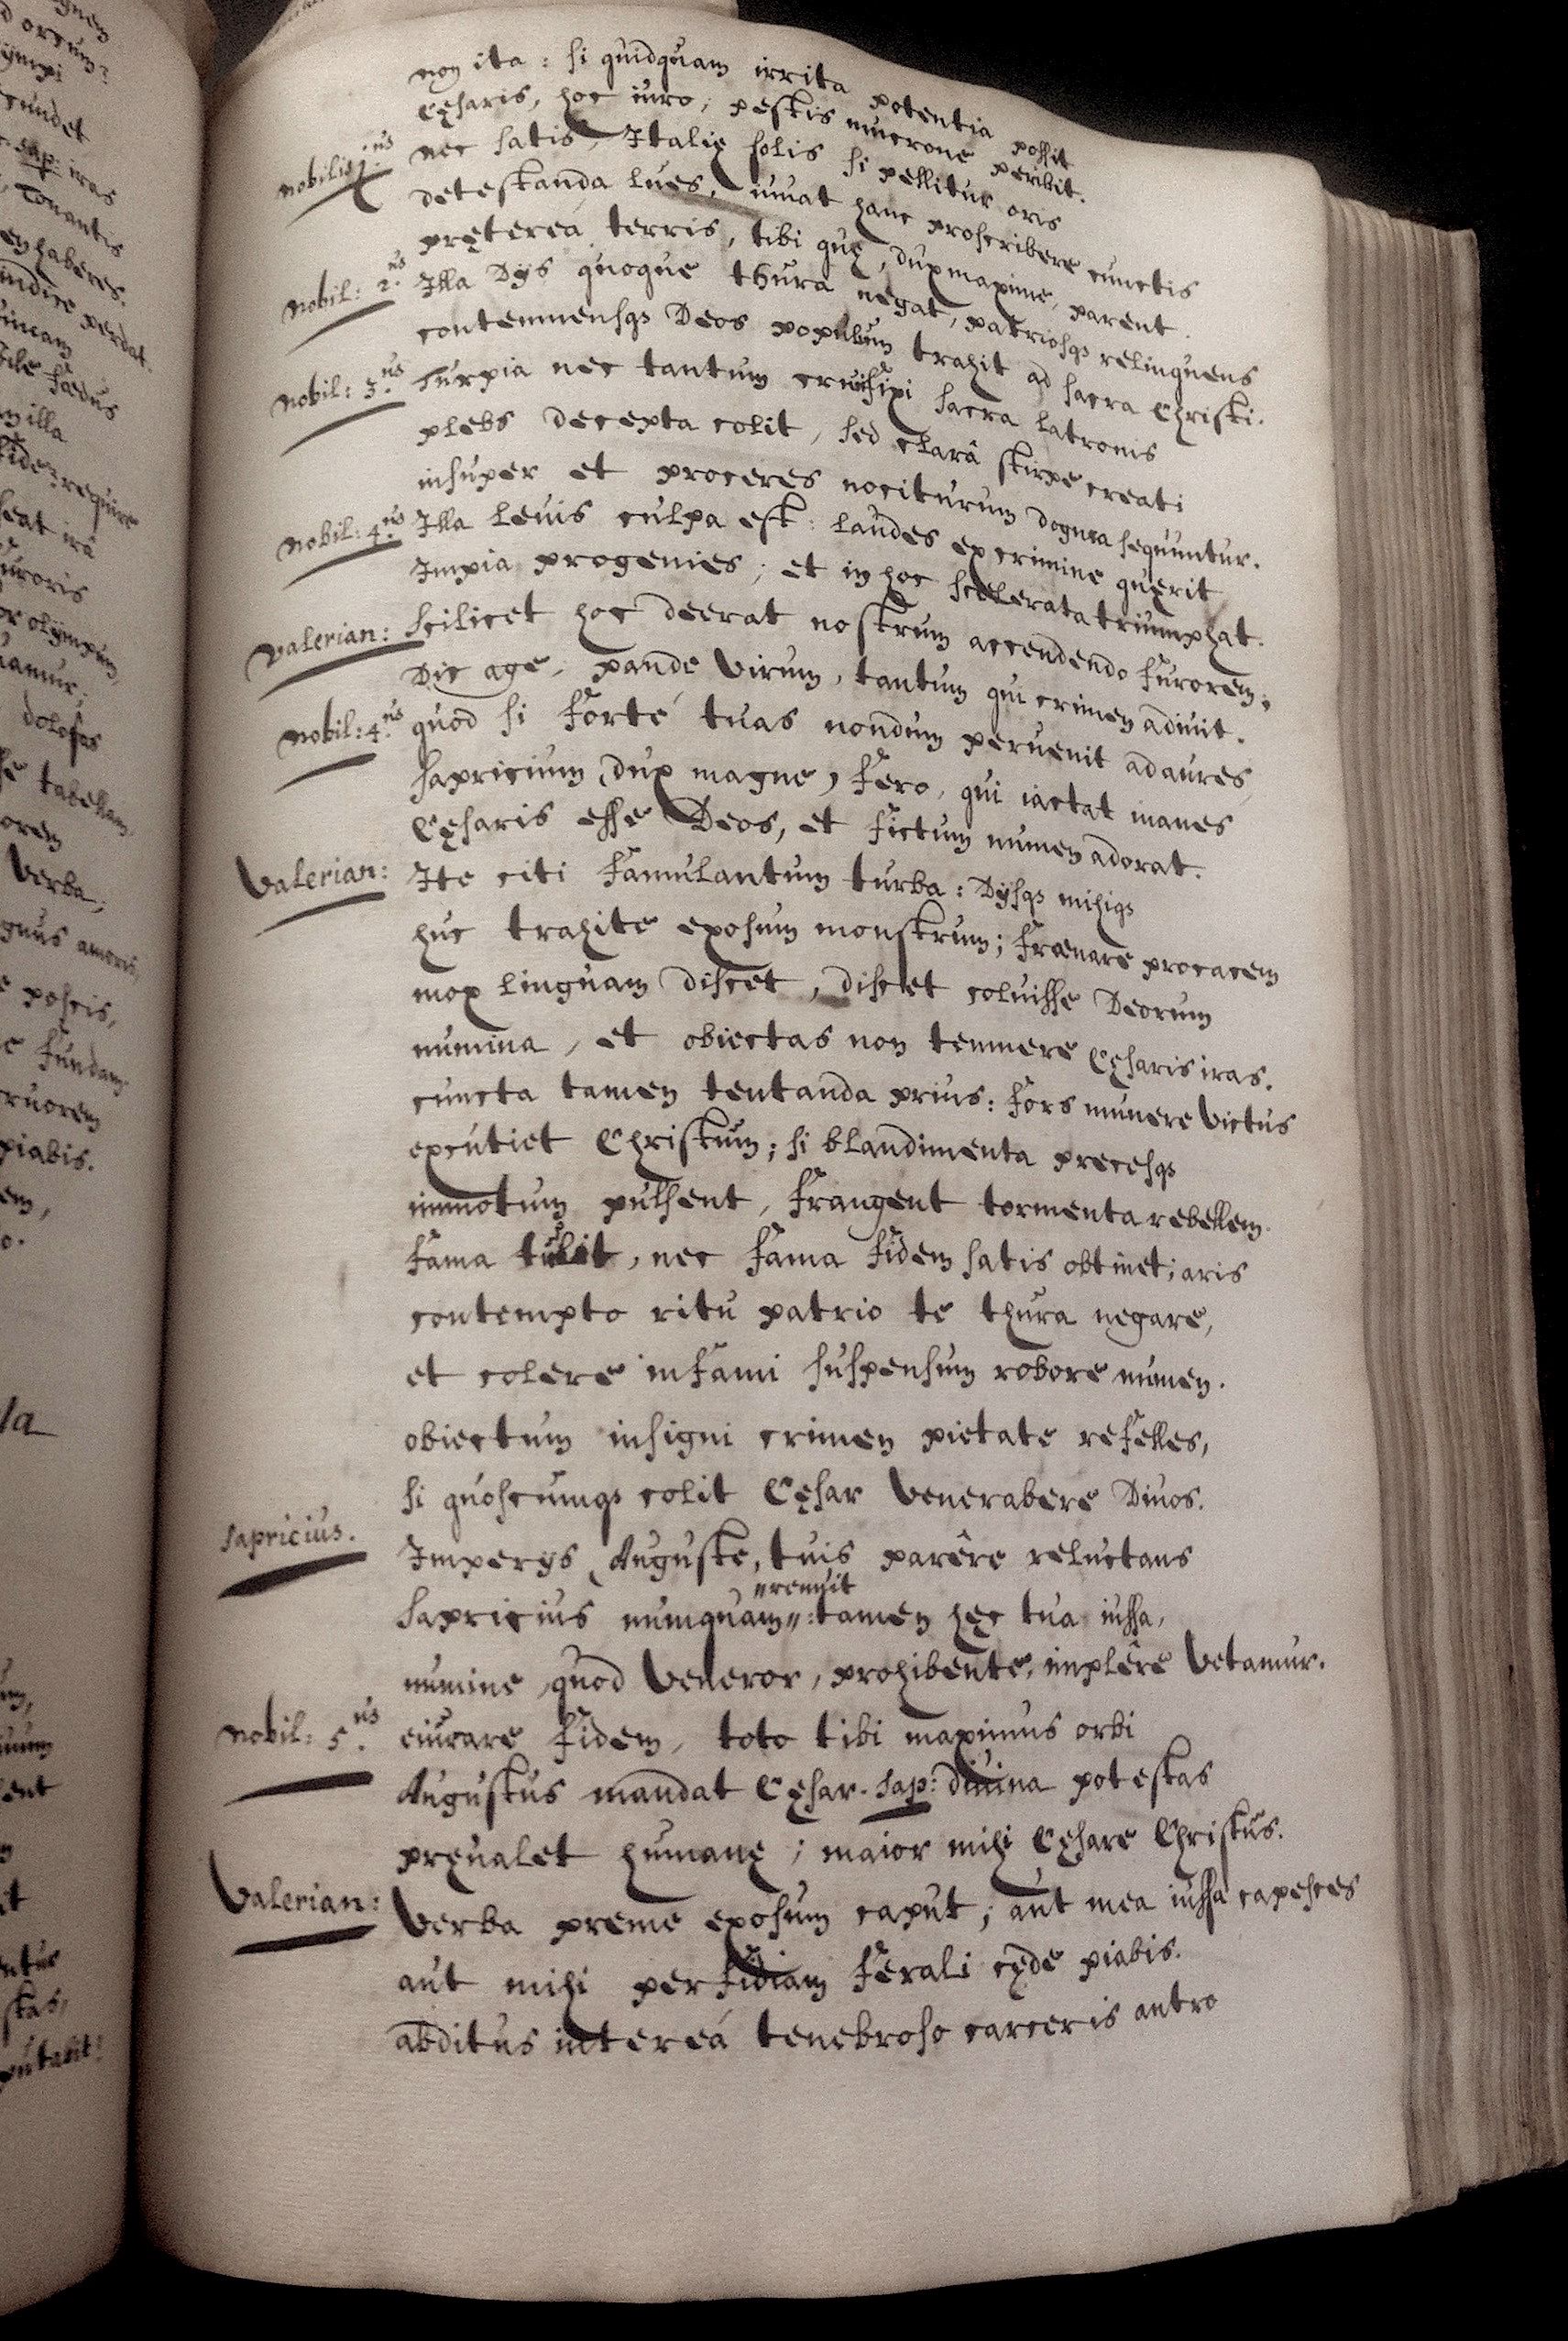 gnem
d ortum?
ympi
cundet
sap: iras
Tonantis
en haberes.
indice perdat.
imam
ile fædus
illa
fidem require
seat irâ
furoris
or olÿmpum,
uamur;
dolosas
se tabellam
orem
verba,
gnus amoris,
e poscis,
e fundam
cruorem
piabis.
em,
o.
la
um,
ent
it
utus
stas,
putabit!
non ita: si quidquam irrita potentia possit
Cęsaris, hoc iuro, pestis mucrone peribit.
nobilis 1.us nec satis, Italię solis si pellitur oris
detestanda lues, iuuat hanc proscribere cunctis
pręterea terris, tibi quę, dux maxime, parent.
Nobil: 2.us Illa Dÿs quoque thura negat, patriosqs relinquens
contemnensqs Deos populum trahit ad sacra Christi.
Nobil: 3.us Turpia nec tantum crucifixi sacra latronis
plebs decepta colit, sed clarâ stirpe creati
insuper et proceres nociturum dogma sequuntur.
Nobil: 4.us Illa leuis culpa est: laudes ex crimine quęrit
Impia progenies; et in hoc scelerata triumphat.
Valerian: Scilicet hoc deerat nostrum accendendo furorem.
Dic age, pande virum, tantum qui crimen adiuit.
Nobil: 4.us quod si forté tuas nondum peruenit ad aures,
Sapricium, dux magne, fero, qui iactat inanes
Cęsaris esse Deos, et fictum numen adorat.
Valerian: Ite citi famulantum turba: Dÿsqs mihiqs
huc trahite exosum monstrum; frænare procacem
mox linguam discet, discet coluisse Deorum
numina, et obiectas non temnere Cęsaris iras.
cuncta tamen tentanda prius: fors munere victus
excutiet Christum; si blandimenta precesqs
immotum pulsent, frangent tormenta rebellem.
fama tulit, nec fama fidem satis obtinet; aris
contempto ritu patrio te thura negare,
et colere infami suspensum robore numen.
obiectum insigni crimen pietate refelles,
si quoscumqs colit Cęsar venerabere Diuos.
Sapricius. Imperÿs, Auguste, tuis parêre reluctans
"renuit
Sapricius numquam": tamen hęc tua iussa,
numine, quod veneror, prohibente, implêre vetamur.
Nobil: 5.us eiurare fidem, toto tibi maximus orbi
Augustus mandat Cęsar. Sap: diuina potestas
pręualet humanę; maior mihi Cęsare Christus.
Valerian: Verba preme exosum caput; aut mea iussa capesces
aut mihi perfidiam ferali cęde piabis.
abditus intereá tenebroso carceris antro